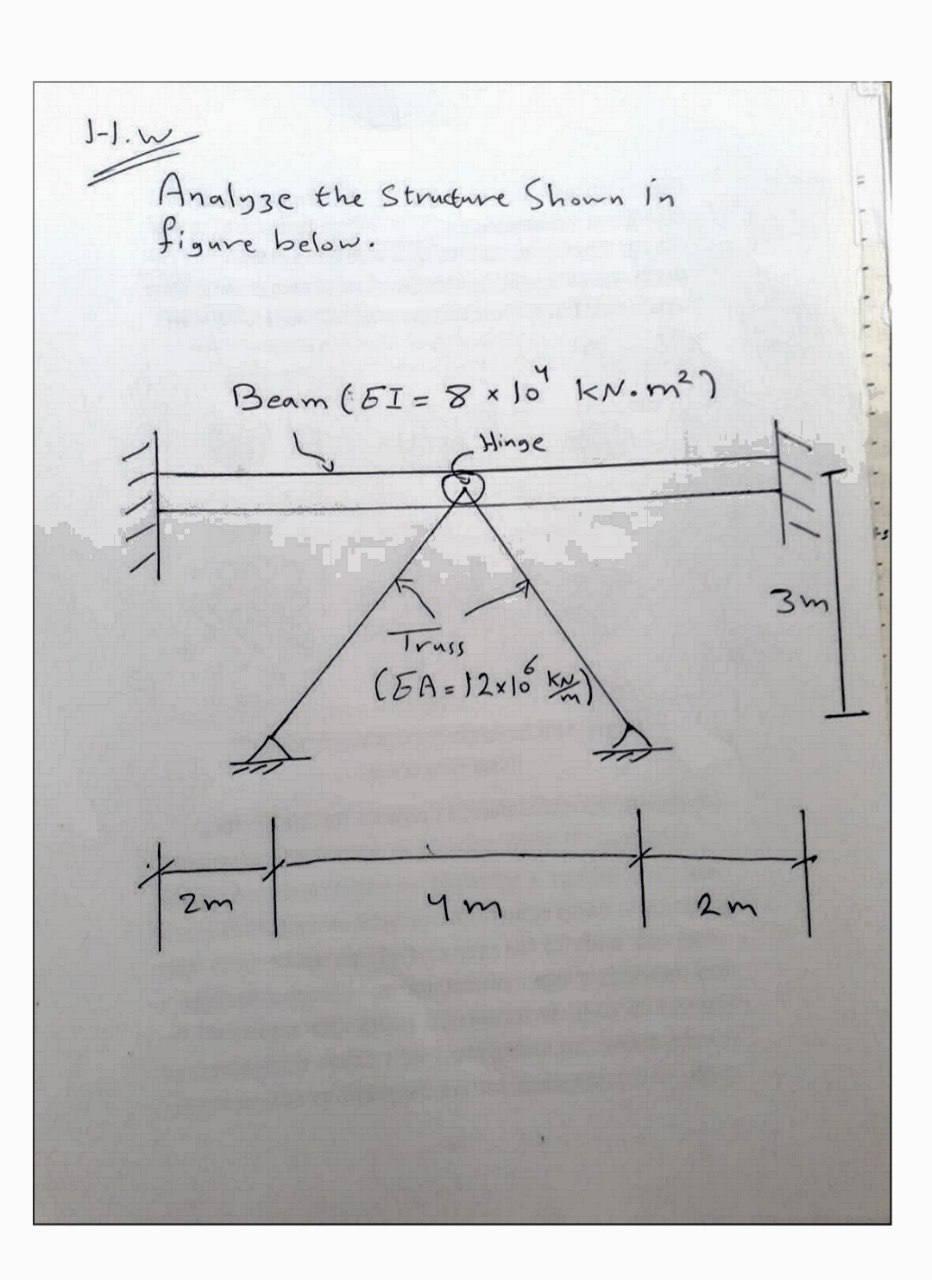 H.W
Analyze the Structure Shown in
figure below.
Beam (EI = 8 × 10⁴ kN.m²)
Hinge
3m
Truss
(EA = 12×10⁶ kN/m)
2m 4m 2m